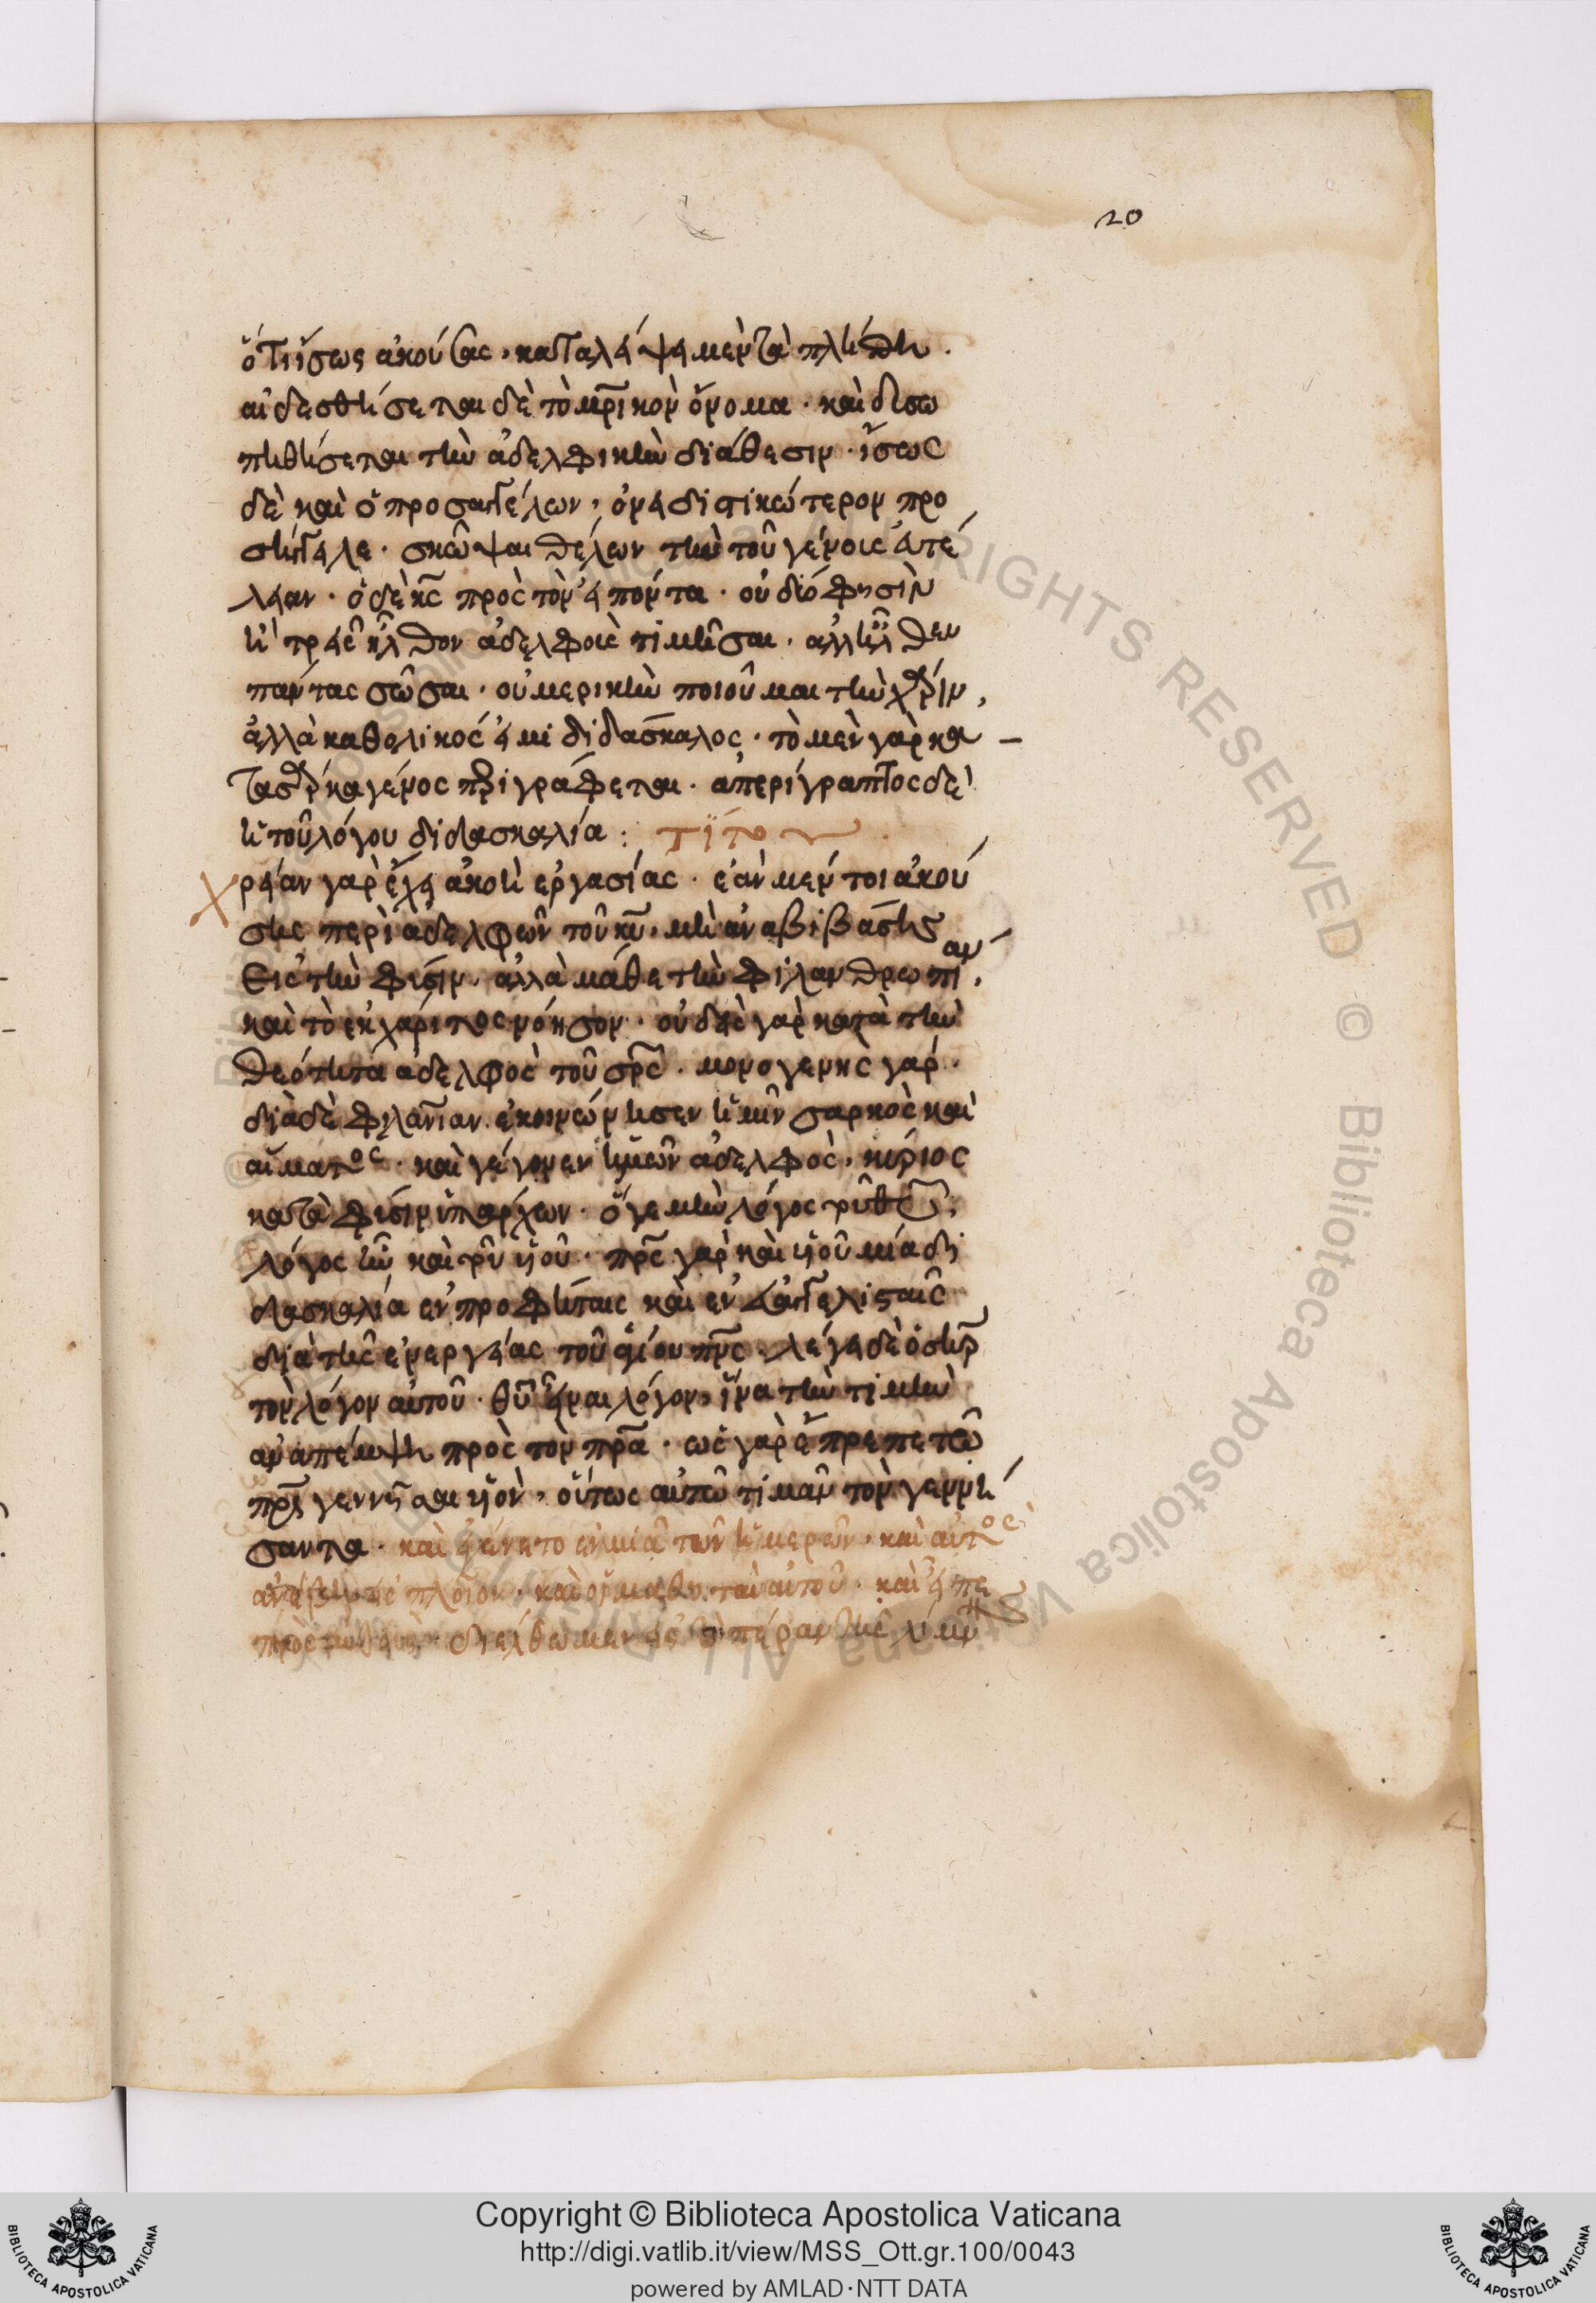 20
ὅτι ἴσως ἀκούσας, καταλείψει μὲν τὰ πλήθη.
αἰδεσθήσεται δὲ τὸ μρ̅ικὸν ὄνομα. καὶ δυσω
πηθήσεται τὴν ἀδελφικὴν διάθεσιν. ἴσως
δὲ καὶ ὁ προσαγγέλων, ὀνειδιστικώτερον προ
σήγγειλε. σκῶψαι θέλων τὴν τοῦ γένους εὐτέ
λειαν. ὁ δὲ κς̅ πρὸς τὸν εἰπόντα. οὐ δύο φησὶν
ἢ τρεῖς ἦλθον ἀδελφοὺς τιμῆσαι. ἀλλ' ἦλθεν
πάντας σῶσαι. οὐ μερικὴν ποιοῦμαι τὴν χάριν,
ἀλλὰ καθολικός εἰμι διδάσκαλος. τὸ μὲν γὰρ κα
τὰ σάρκα γένος περιγράφεται. ἀπερίγραπτος δὲ
ἡ τοῦ λόγου διδασκαλία: τίτου
Χρείαν γὰρ ἔχει ἀκοὴ ἐργασίας. ἐὰν μέν τοι ἀκού
σης περὶ ἀδελφῶν τοῦ κυ̅, μὴ ἀναβιβάσης
εἰς τὴν φύσιν, ἀλλὰ μάθε τὴν φιλανθρωπίαν,
καὶ τὸ ἐκ χάριτος νόησον. οὐδεὶς γὰρ κατὰ τὴν
θεότητα ἀδελφὸς τοῦ σρ̅ς. μονογενὴς γάρ.
διὰ δὲ φιλαν̅ιαν ἐκοινώνησεν ἡμῖν σαρκὸς καὶ
αἵματος. καὶ γέγονεν ἡμῶν ἀδελφὸς, κύριος
κατὰ φύσιν ὑπάρχων. ὅγε μὴν λόγος
λόγος ἦν καὶ υἱοῦ. πρ̅ς γὰρ καὶ υἱοῦ μία δι
δασκαλία ἐν προφήταις καὶ ἐν εὐαγγελισταῖς
διὰ τῆς ἐνεργείας τοῦ ἁγίου πν̅ς. λέγει δὲ ὁ σὴρ̅
τὸν λόγον αὐτοῦ. θυ̅ εἶναι λόγον, ἵνα τὴν τιμὴν
ἀναπέμψη πρὸς τὸν πρ̅α. ὡς γὰρ ἔπρεπε τῶ
πρ̅ι γεννῆσαι υἱὸν, οὕτως αὐτῶ τιμᾶν τὸν γεννή
σαντα. καὶ ἐγένετο ἐν μιᾶ τῶν ἡμερῶν, καὶ αὐτὸς
ἀνέβη εἰς πλοῖον. καὶ οἱ μαθηταὶ αὐτοῦ. καὶ εἶπε
πρὸς αὐτούς. διέλθωμεν εἰς τὸ πέραν τῆς λίμν
Copyright © Biblioteca Apostolica Vaticana
http://digi.vatlib.it/view/MSS_Ott.gr.100/0043
powered by AMLAD·NTT DATA